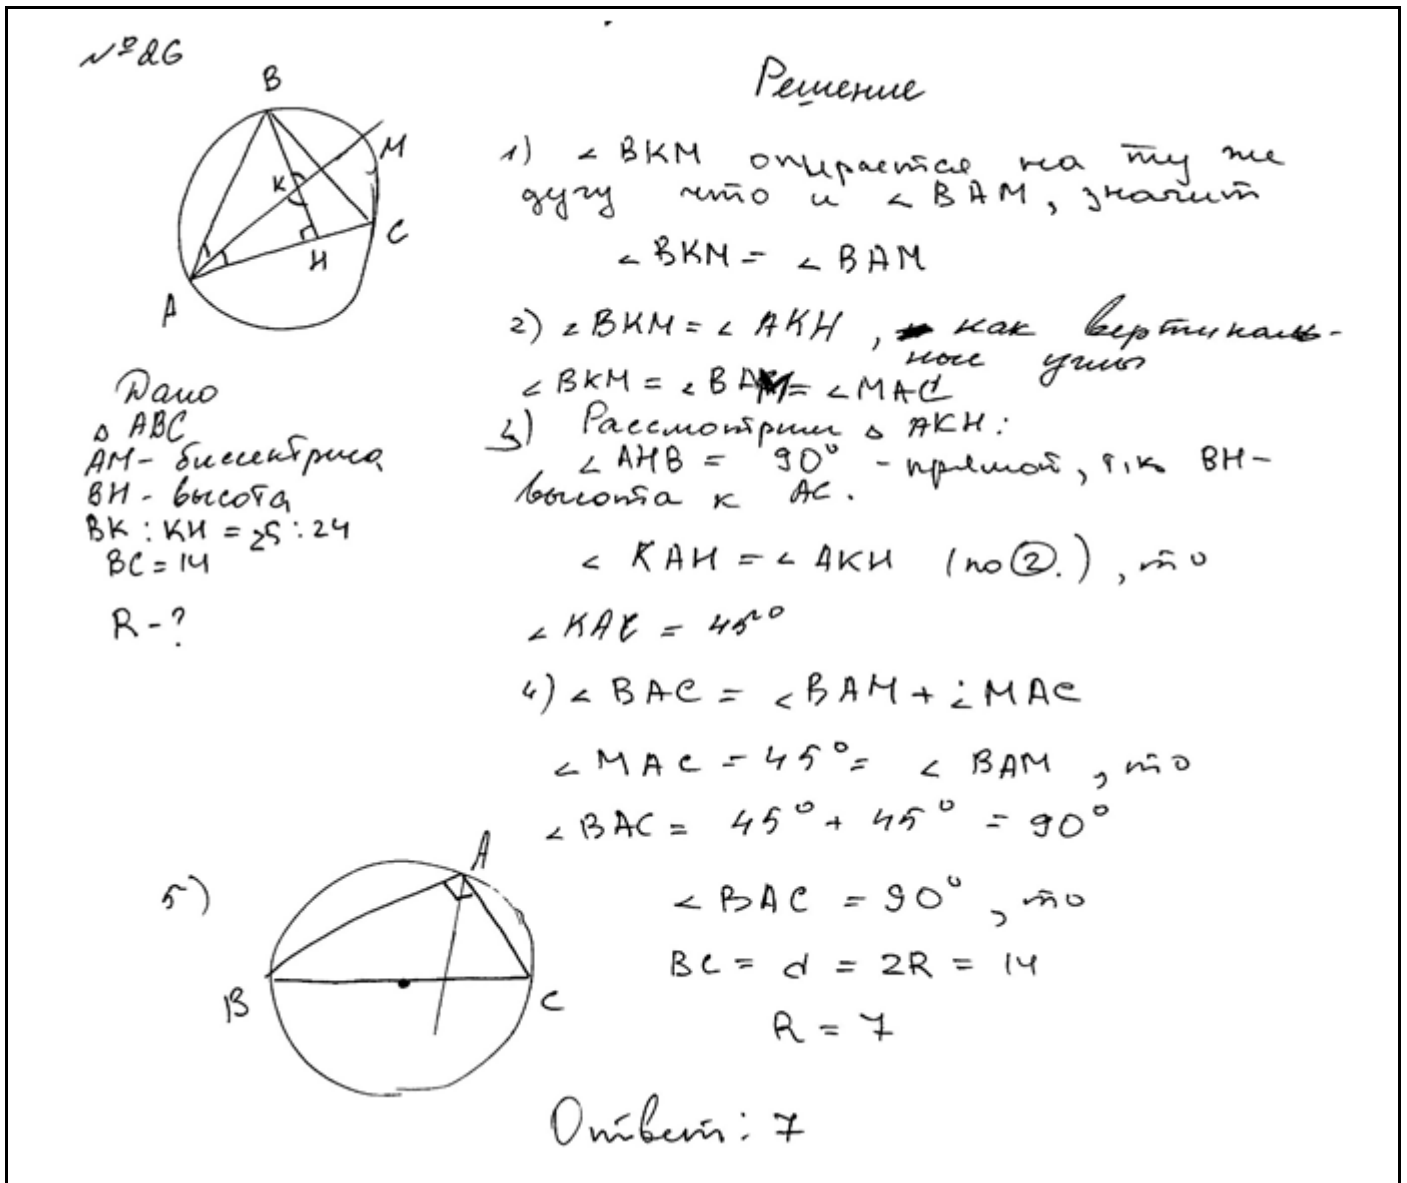 №26
B
M
K
C
H
A
Дано
△ ABC
AM - биссектриса
BH - высота
BK : KH = 25 : 24
BC = 14
R - ?
Решение
1) ∠ BKM опирается на ту же
дугу что и ∠ BAM, значит
∠ BKM = ∠ BAM
2) ∠ BKM = ∠ AKH, как вертикаль-
ные углы
∠ BKM = ∠ BAM = ∠ MAC
3) Рассмотрим △ AKH:
∠ AHB = 90° - прямой, т.к. BH -
высота к AC.
∠ KAH = ∠ AKH (по 2.), то
∠ KAC = 45°
4) ∠ BAC = ∠ BAM + ∠ MAC
∠ MAC = 45° = ∠ BAM, то
∠ BAC = 45° + 45° = 90°
5)
A
B
C
∠ BAC = 90°, то
BC = d = 2R = 14
R = 7
Ответ: 7